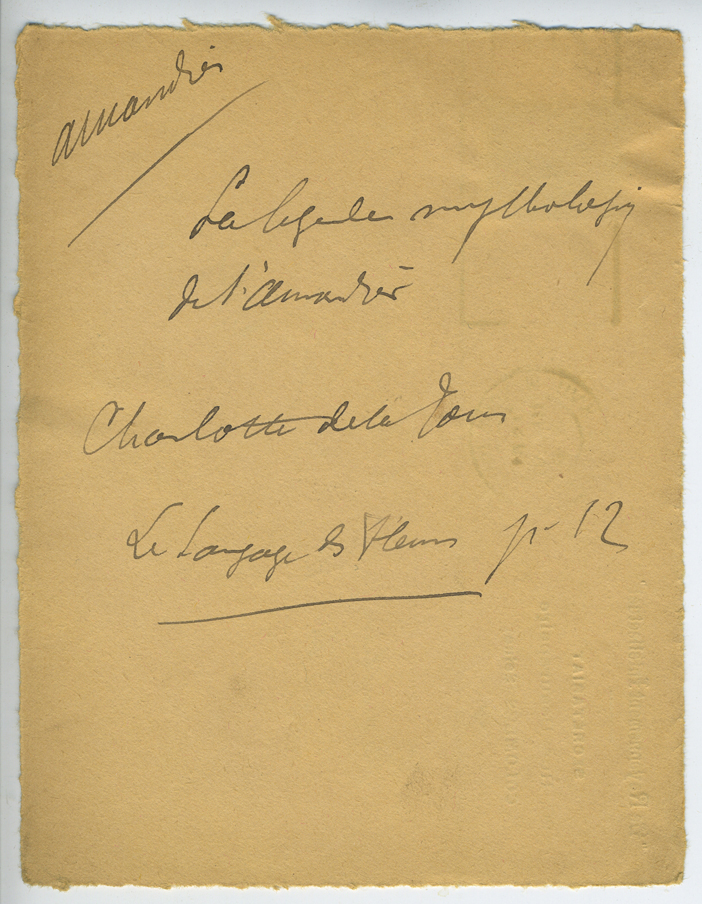 amandier
La légende mythologiq
de l'Amandier
Charlotte de la Tour
Le Langage des Fleurs p. 12